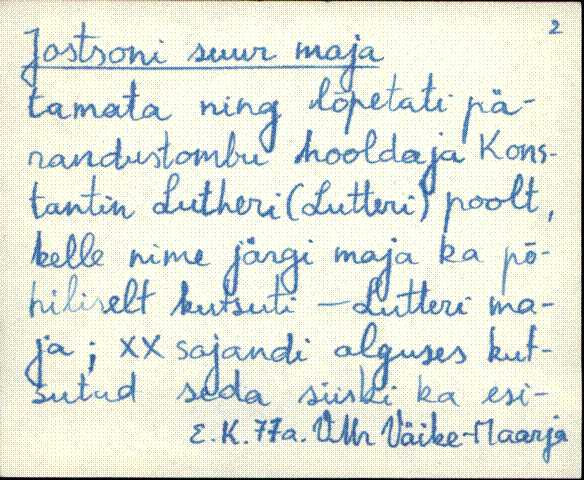 2
Jostsoni suur maja
tamata ning lõpetati pä-
randustombu hooldaja Kons-
tantin Lutheri (Lutteri) poolt,
kelle nime järgi maja ka põ-
hiliselt kutsuti - Lutteri ma-
ja; XX sajandi alguses kut-
sutud seda siiski ka esi-
E.K. 77a. VMr Väike-Maarja